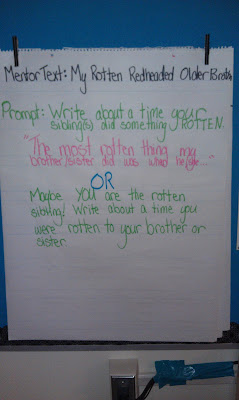 Mentor Text: My Rotten Redheaded Older Brother
Prompt: Write about a time your
sibling(s) did something ROTTEN.
"The most rotten thing my
brother/sister did was when he/she..."
OR
Maybe YOU are the rotten
sibling! Write about a time you
were rotten to your brother or
sister.